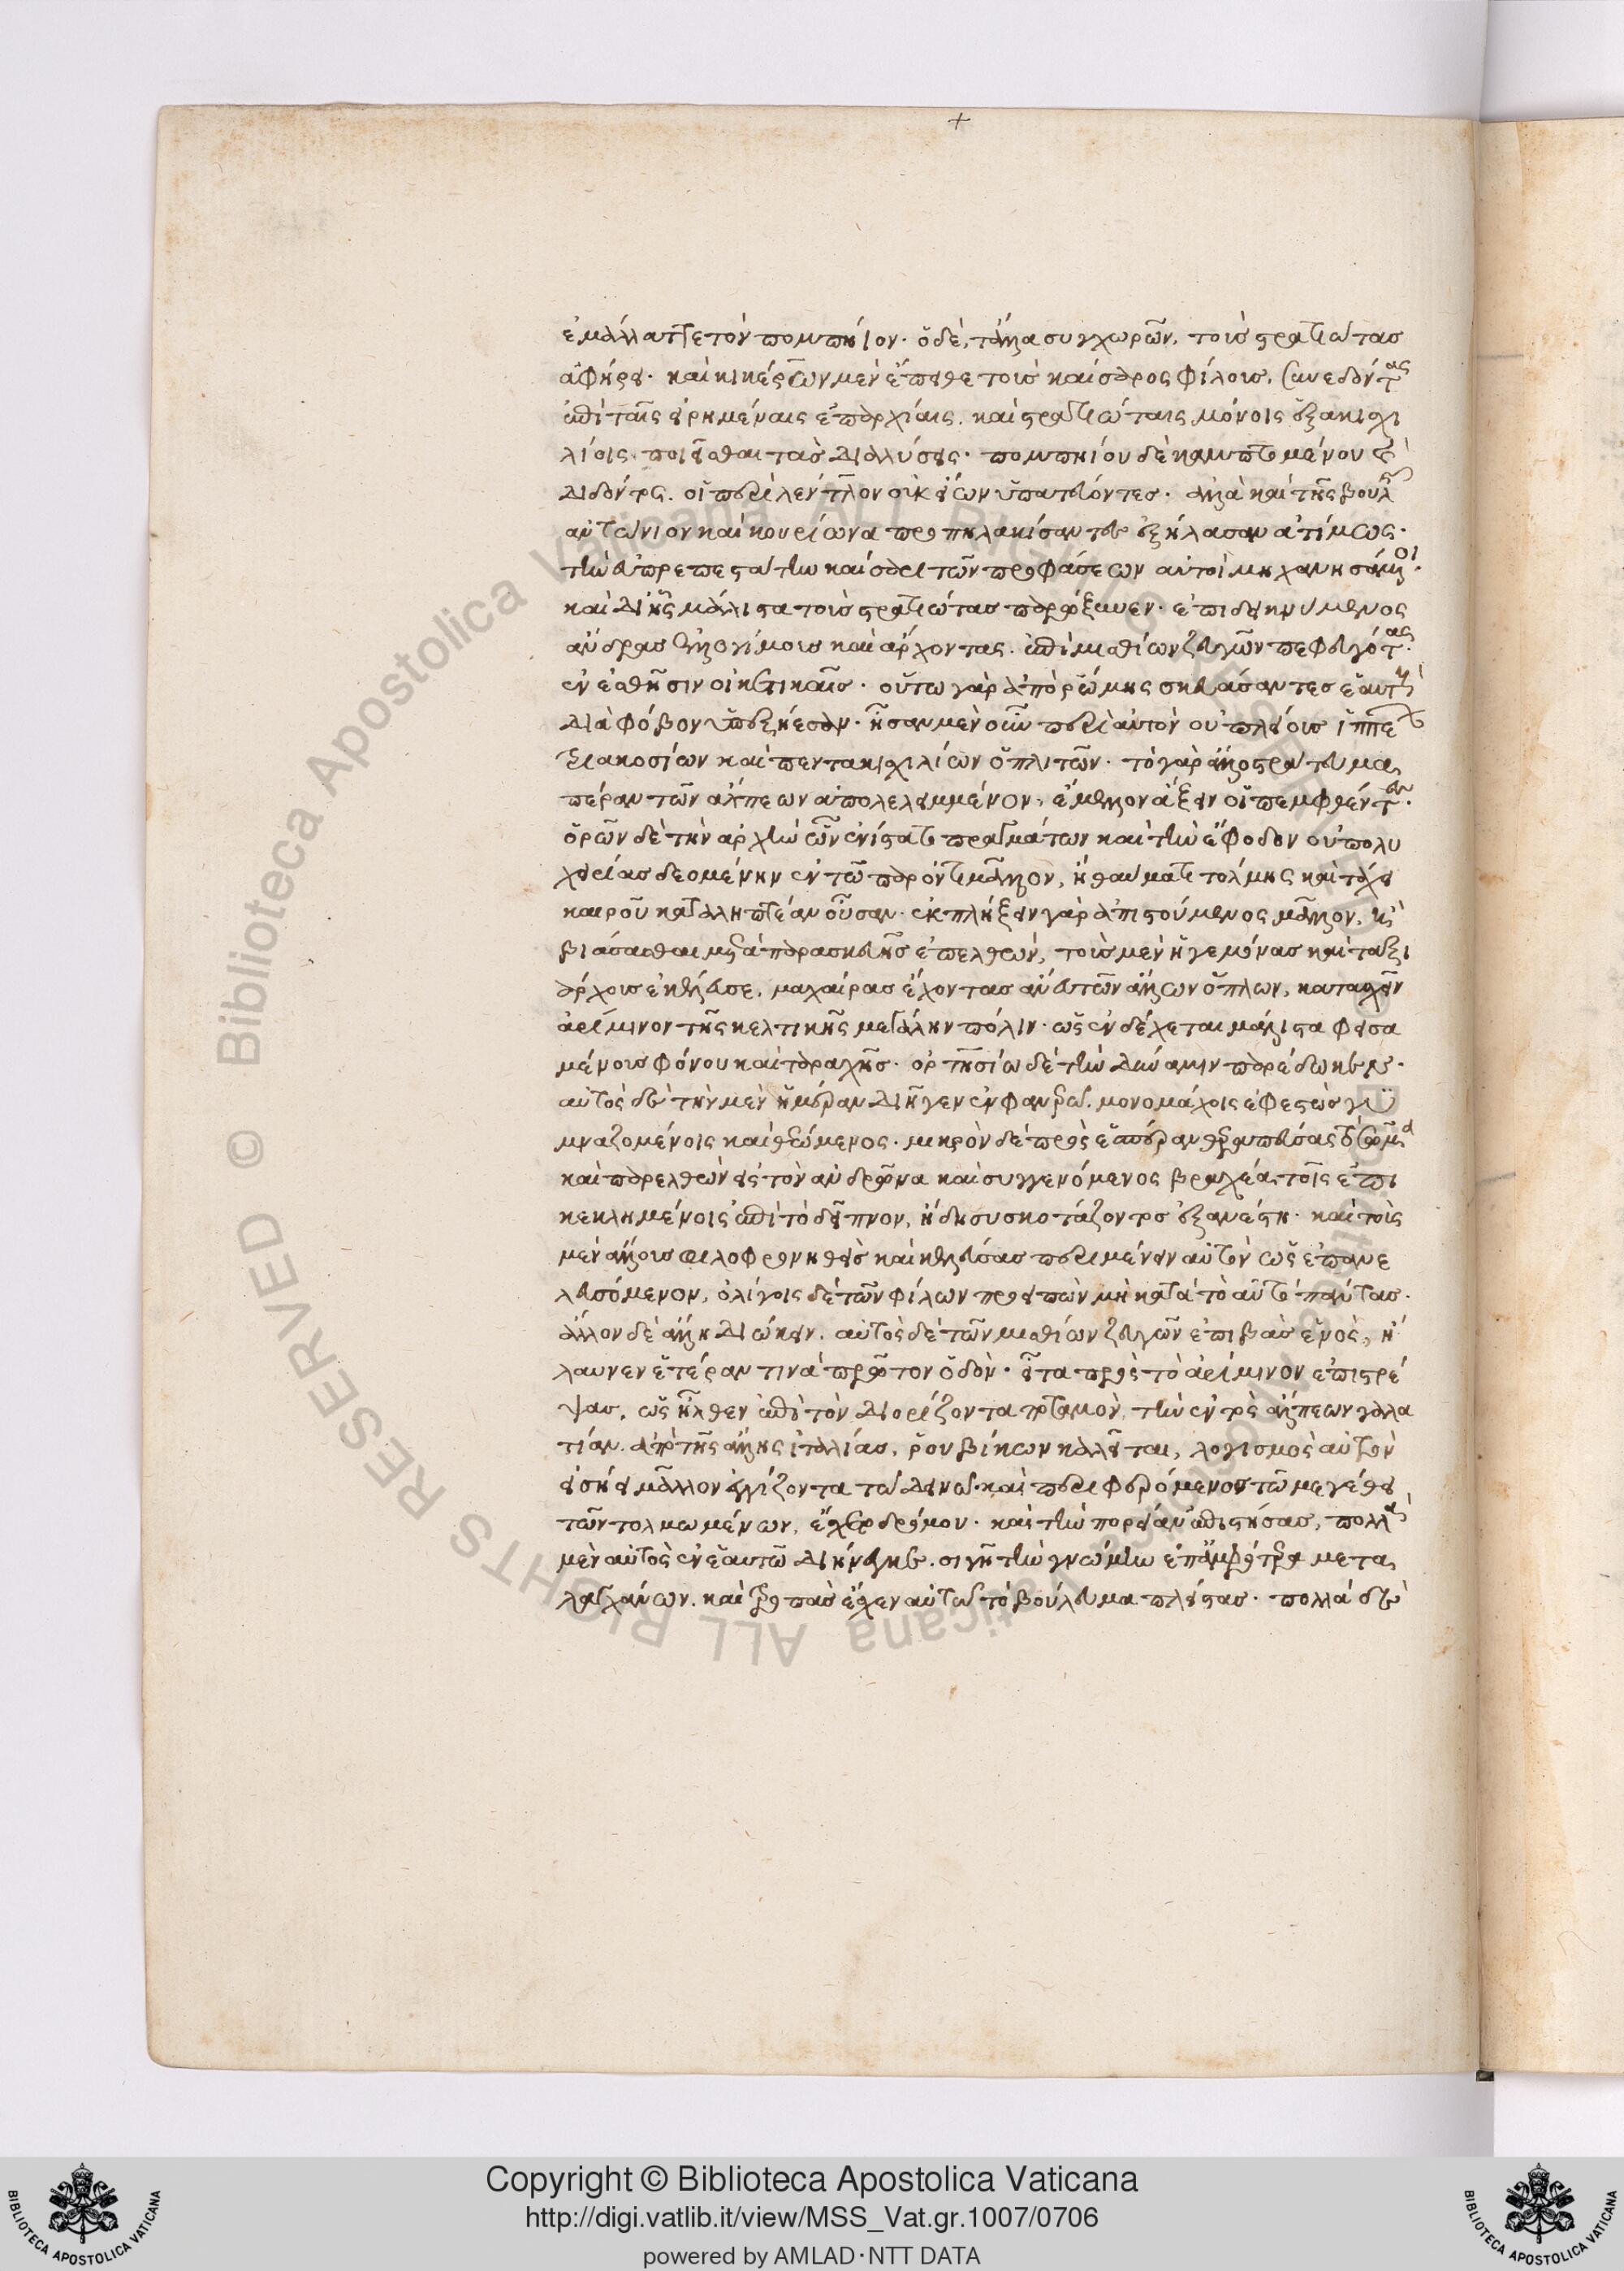 +
ἐμάλαττε τὸν πομπήϊον. ὁ δὲ, τἄλλα συγχωρῶν, τοὺς στρατιώτας
ἀφήρει. καὶ κικέρων μὲν ἔπειθε τοὺς καίσαρος φίλους, συνενδόντας
ἐπὶ ταῖς εἰρημέναις ἐπαρχίαις, καὶ στρατιώταις μόνοις ἑξακισχι
λίοις ποιεῖσθαι τὰς διαλύσεις. πομπηίου δὲ καμπτομένου καὶ
διδόντος, οἱ περὶ λέντλον οὐκ εἴων ὑπατεύοντες. ἀλλὰ καὶ τῆς βουλῆς
ἀντώνιον καὶ κουρίωνα προπηλακίσαντες ἐξήλασαν ἀτίμως.
τὴν εὐπρεπεστάτην καίσαρι τῶν προφάσεων αὐτοὶ μηχανησάμενοι.
καὶ δι' ἧς μάλιστα τοὺς στρατιώτας παρώξυνεν. ἐπιδεικνύμενος
ἄνδρας ἐλλογίμους καὶ ἄρχοντας. ἐπὶ μισθίων ζευγῶν πεφευγότας
ἐν ἐσθῆσιν οἰκετικαῖς. οὕτω γὰρ ἀπὸ ῥώμης σκευάσαντες ἑαυτοὺς
διὰ φόβον ὑπεξῄεσαν. ἦσαν μὲν οὖν περὶ αὐτὸν οὐ πλείους ἱππέων
τριακοσίων καὶ πεντακισχιλίων ὁπλιτῶν. τὸ γὰρ ἄλλο στράτευμα
πέραν τῶν ἄλπεων ἀπολελειμμένον, ἔμελλον ἄξειν οἱ πεμφθέντες.
ὁρῶν δὲ τὴν ἀρχὴν ὧν ἐνίστατο πραγμάτων καὶ τὴν ἔφοδον οὐ πολυ
χειρίας δεομένην ἐν τῷ παρόντι μᾶλλον, ἢ θαύματι τόλμης καὶ τάχει
καιροῦ καταληπτέαν οὖσαν. ἐκπλήξειν γὰρ ἀπιστούμενος μᾶλλον, ἢ
βιάσασθαι μετὰ παρασκευῆς ἐπελθών, τοὺς μὲν ἡγεμόνας καὶ ταξι
άρχους ἐκέλευσε, μαχαίρας ἔχοντας ἄνευ τῶν ἄλλων ὅπλων, κατασχεῖν
ἀρίμινον τῆς κελτικῆς μεγάλην πόλιν. ὡς ἐνδέχεται μάλιστα φεισα
μένους φόνου καὶ ταραχῆς. ὁρτησίῳ δὲ τὴν δύναμιν παρέδωκεν.
αὐτὸς δὲ τὴν μὲν ἡμέραν διῆγεν ἐν φανερῷ, μονομάχοις ἐφεστὼς γυ
μναζομένοις καὶ θεώμενος. μικρὸν δὲ πρὸς ἑσπέραν θεραπεύσας τὸ σῶμα
καὶ παρελθὼν εἰς τὸν ἀνδρῶνα καὶ συγγενόμενος βραχέα τοῖς ἐπι
κεκλημένοις ἐπὶ τὸ δεῖπνον, ἤδη συσκοτάζοντος ἐξανέστη. καὶ τοὺς
μὲν ἄλλους φιλοφρονηθεὶς καὶ κελεύσας περιμένειν αὐτὸν ὡς ἐπανε
λευσόμενον, ὀλίγοις δὲ τῶν φίλων προειπὼν μὴ κατὰ τὸ αὐτὸ πάντας.
ἄλλον δὲ ἄλλη διώκειν. αὐτὸς δὲ τῶν μισθίων ζευγῶν ἐπιβὰς ἑνὸς, ἤ
λαυνεν ἑτέραν τινὰ πρῶτον ὁδὸν. εἶτα πρὸς τὸ ἀρίμινον ἐπιστρέ
ψας, ὡς ἦλθεν ἐπὶ τὸν διορίζοντα ποταμὸν, τὴν ἐντὸς ἄλπεων γαλα
τίαν ἀπὸ τῆς ἄλλης ἰταλίας, ῥουβίκων καλεῖται, λογισμὸς αὐτὸν
εἰσῄει μᾶλλον ἐγγίζοντα τῷ δεινῷ. καὶ περιφερόμενον τῷ μεγέθει
τῶν τολμωμένων, ἔσχετο δρόμου. καὶ τὴν πορείαν ἐπιστήσας, πολλὰ
μὲν αὐτὸς ἐν ἑαυτῷ διήνεγκε, σιγῇ τὴν γνώμην ἐπ' ἀμφότερα μετα
λαγχάνων, καὶ τροπὰς ἔσχεν αὐτῷ τὸ βούλευμα πλείστας. πολλὰ δὲ καὶ
Copyright © Biblioteca Apostolica Vaticana
http://digi.vatlib.it/view/MSS_Vat.gr.1007/0706
powered by AMLAD·NTT DATA
BIBLIOTECA APOSTOLICA VATICANA
BIBLIOTECA APOSTOLICA VATICANA